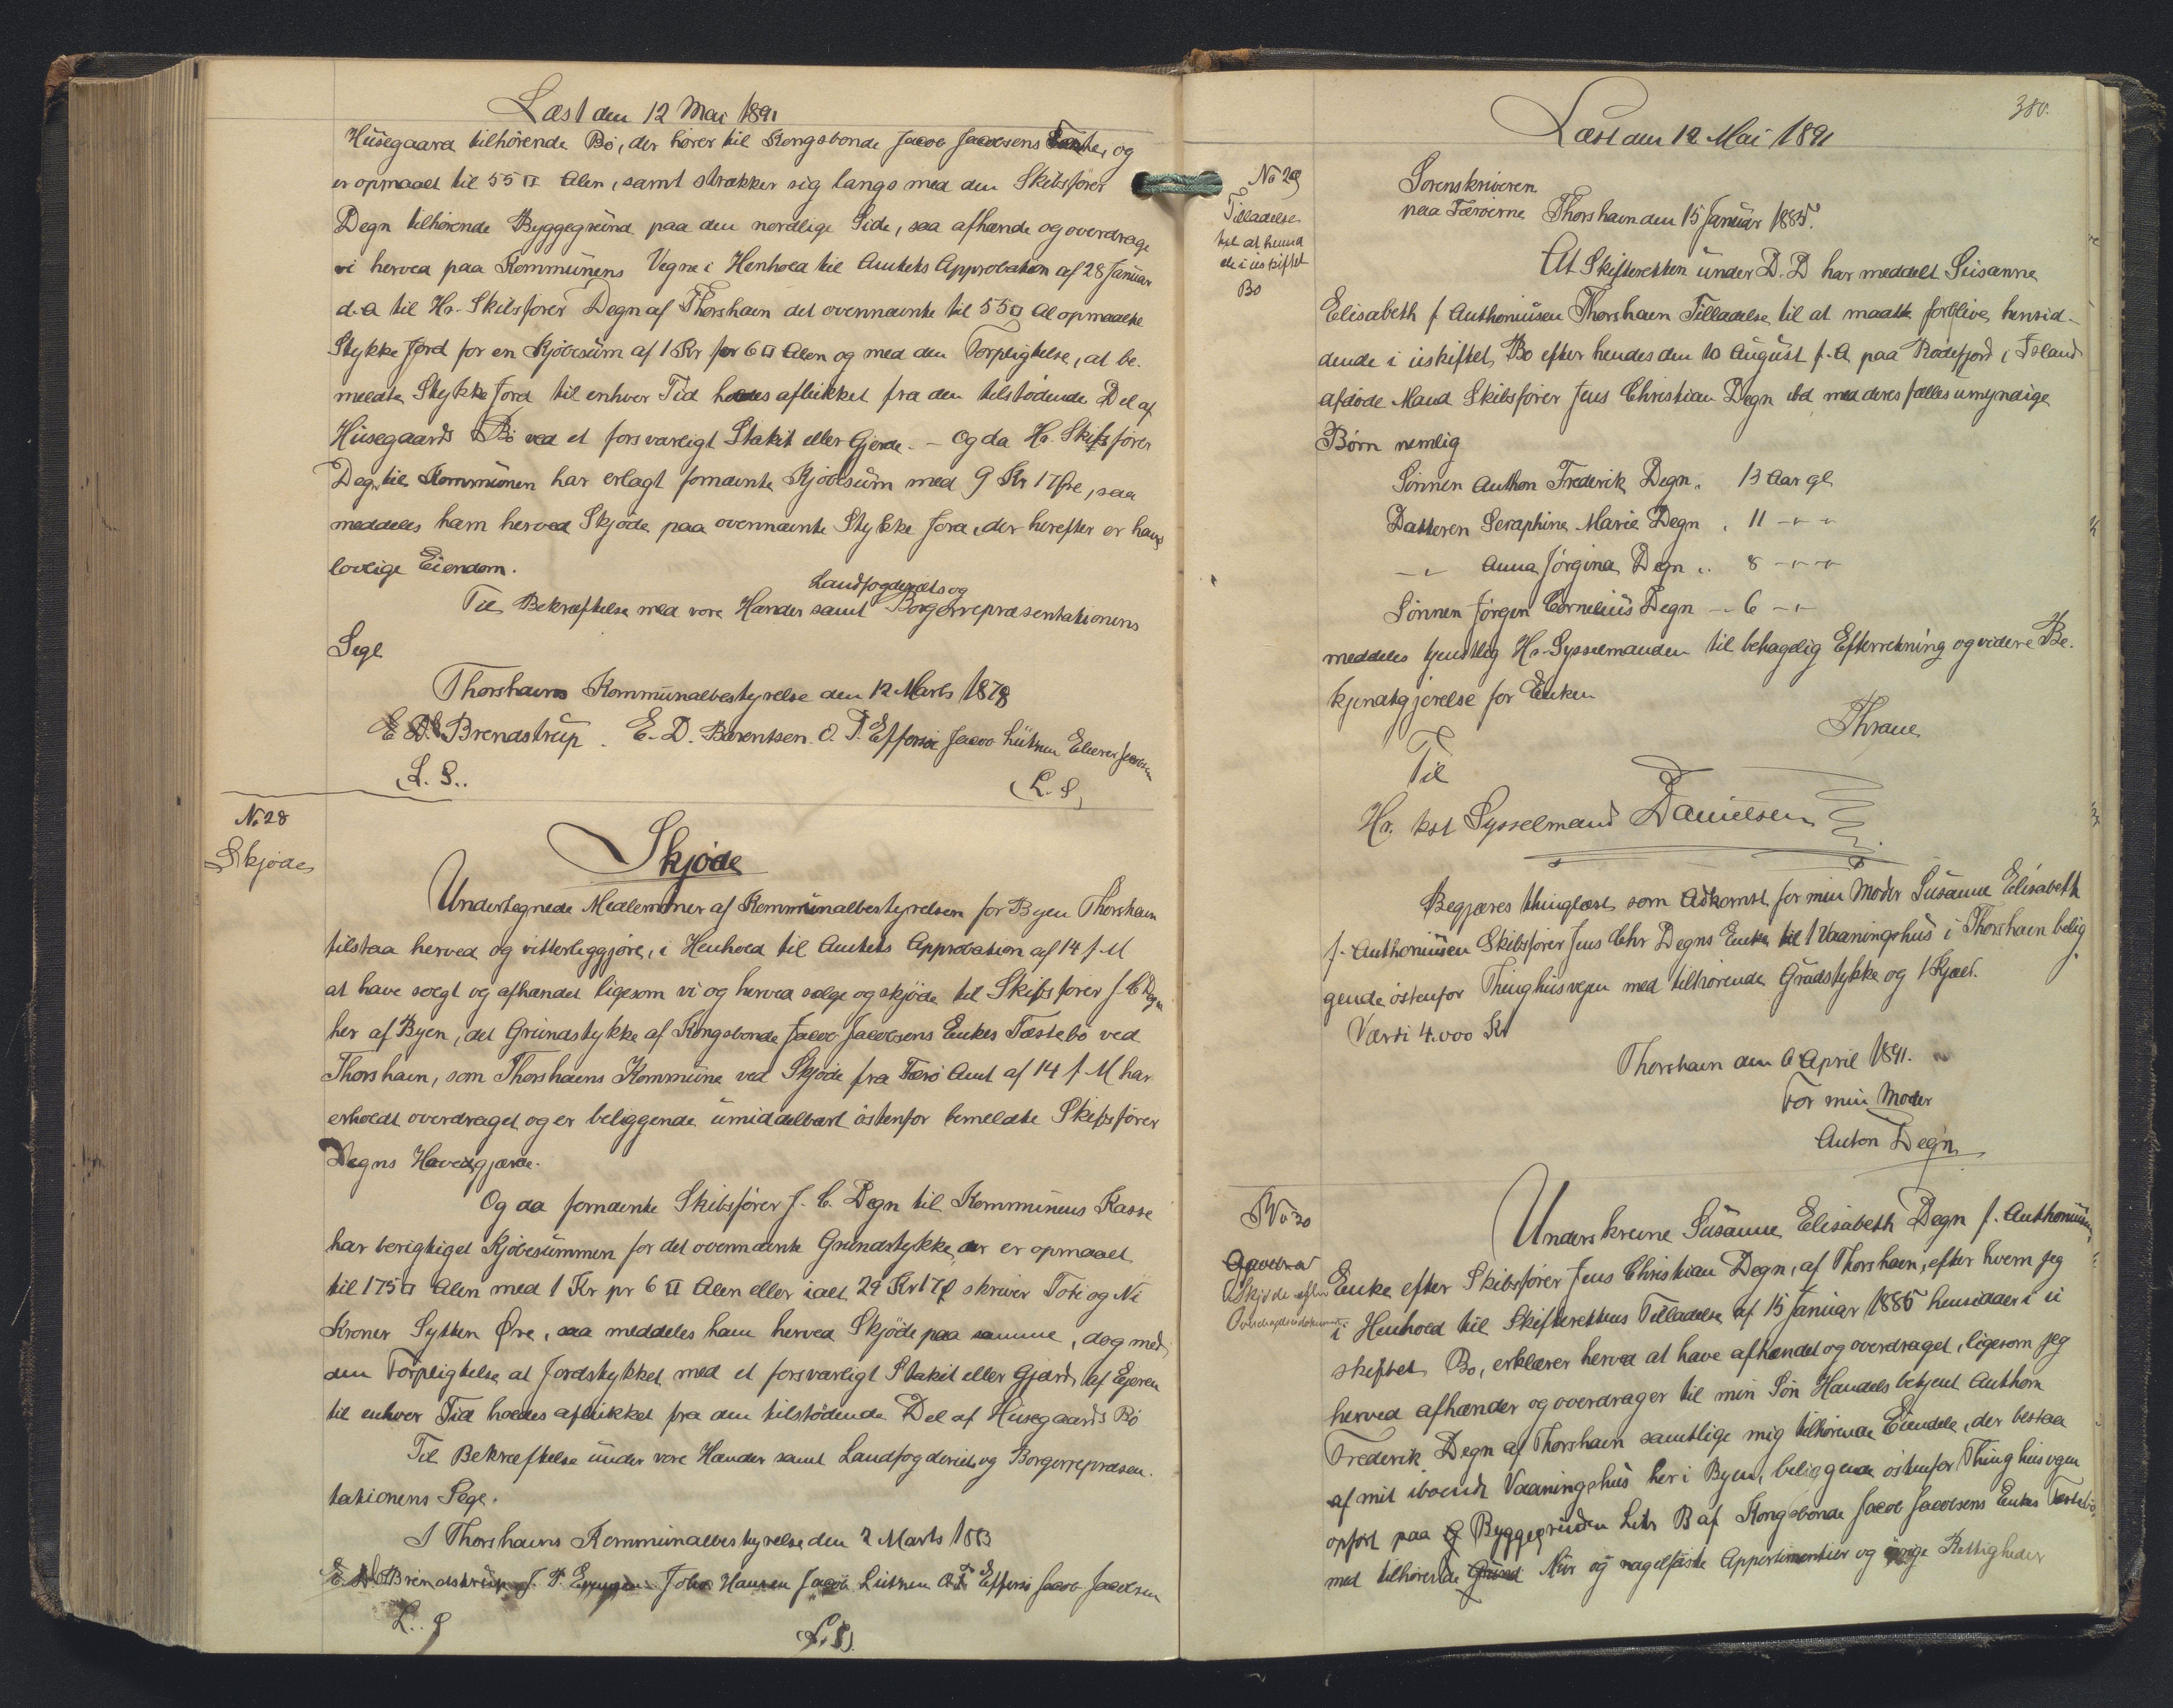 Læst den 12 Mai 1891
Husegaard tilhørende Bø, der hører til Kongsbonde Jacob Jacobsens Fæste, og
er opmaalt til 55 □ Alen, samt strækker sig langs med den Skibsfører
Degn tilhørende Byggegrund paa den nordlige Side, saa afhænde og overdrage
vi herved paa Kommunens Vegne i Henhold til Amtets Approbation af 28 Januar
d.A til Hr. Skibsfører Degn af Thorshavn det ovennævnte til 55 □ Al opmaalte
Stykke Jord for en Kjøbesum af 1 Kr for 6 □ Alen og med den Forpligtelse, at be-
meldte Stykke Jord til enhver Tid holdes aflukket fra den tilstødende Del af
Husegaards Bø ved et forsvarligt Stakit eller Gjerde. – Og da Hr. Skibsfører
Degn til Kommunen har erlagt fornævnte Kjøbesum med 9 Kr 17 Øre, saa
meddeles ham herved Skjøde paa ovennævnte Stykke Jord, der herefter er hans
lovlige Eiendom.
Til Bekræftelse med vore Hænder samt Landfogderiets og Borgerrepræsentationens
Segl
Thorshavns Kommunalbestyrelse den 12 Marts 1878
E Brendstrup . E. D. Bærentsen. O. P. Effersø Jacob Lützen
L. S.. (L. S,
No 28
Skjøde
Skjøde
Undertegnede Medlemmer af Kommunalbestyrelsen for Byen Thorshavn
tilstaa herved og vitterliggjøre, i Henhold til Amtets Approbation af 14 f M
at have solgt og afhændet ligesom vi og herved sælge og skjøde til Skibsfører J. C Degn
her af Byen, det Grundstykke af Kongsbonde Jacob Jacobsens Enkes Fæstebø ved
Thorshavn, som Thorshavns Kommune ved Skjøde fra Færø Amt af 14 f M har
erholdt overdraget og er beliggende umiddelbart østenfor bemeldte Skibsfører
Degns Havegjærde.
Og da fornævnte Skibsfører J. C. Degn til Kommunens Kasse
har berigtiget Kjøbesummen for det ovennævnte Grundstykke, der er opmaalt
til 175 □ Alen med 1 Kr pr 6 □ Alen eller ialt 29 Kr 17 Ø skriver Toti og Ni
Kroner Sytten Øre, saa meddeles ham herved Skjøde paa samme, dog med
den Forpligtelse at Jordstykket med et forsvarligt Stakit eller Gjærde af Ejeren
til enhver Tid holdes aflukket fra den tilstødende Del af Husegaards Bø
Til Bekræftelse under vore Hænder samt Landfogderiets og Borgerrepræsen-
tationens Segl.
I Thorshavns Kommunalbestyrelse den 2 Marts 1883
E Brendstrup J. P. Johs Hansen Jacob Lützen O. P. Effersø Jacob Jacobsen
L. . S (L. S).
380.
Læst den 12 Mai 1891
No 29
Tilladelse
til at hensid
de i uskiftet
Bo
Sorenskriveren
paa Færøerne Thorshavn den 15 Januar 1885.
At Skifteretten under D. D har meddelt Susanne
Elisabeth f Anthoniusen Thorshavn Tilladelse til at maatte forblive hensid-
dende i uskiftet Bo efter hendes den 10 August f. A paa Rødefjord i Island
afdøde Mand Skibsfører Jens Christian Degn ibd med deres fælles umyndige
Børn nemlig
Sønnen Anthon Frederik Degn . 13 Aar gl
Datteren Seraphine Marie Degn . 11 - " - "
- " Anna Jørgina Degn .. 8 - " - "
Sønnen Jørgen Cornelius Degn - . 6 - " -
meddeles tjenstlig Hr. Sysselmanden til behagelig Efterretning og videre Be-
kjendtgjørelse for Enken
Thrane
Til
Hr. kst Sysselmand Danielsen
Begjæres thinglæst som Adkomst for min Moder Susanne Elisabeth
f. Anthoniusen Skibsfører Jens Chr Degns Enke til 1 Vaaningshus i Thorshavn belig
gende østenfor Thinghusvejen med tilhørende Grundstykke og 1 Kjæld.
Værdi 4.000 Kr
Thorshavn den 6 April 1891.
For min Moder
Anton Degn
No 30
Skjøde efter
Overdragelsesdokument
Underskrevne Susanne Elisabeth Degn f. Anthoniusen,
Enke efter Skibsfører Jens Christian Degn, af Thorshavn, efter hvem jeg
i Henhold til Skifterettens Tilladelse af 15 Januar 1885 hensidder i u
skiftet Bo, erklærer herved at have afhændet og overdraget, ligesom jeg
herved afhænder og overdrager til min Søn Handelsbetjent Anthon
Frederik Degn af Thorshavn samtlige mig tilhørende Eiendele, der bestaa
af mit iboende Vaaningshus her i Byen, beliggende østenfor Thinghusvejen
opført paa Byggegrunden Litr B af Kongsbonde Jacob Jacobsens Enkes Fæstebø,
med tilhørende Grund Nur og nagelfaste Appertinentier og øvrige Rettigheder